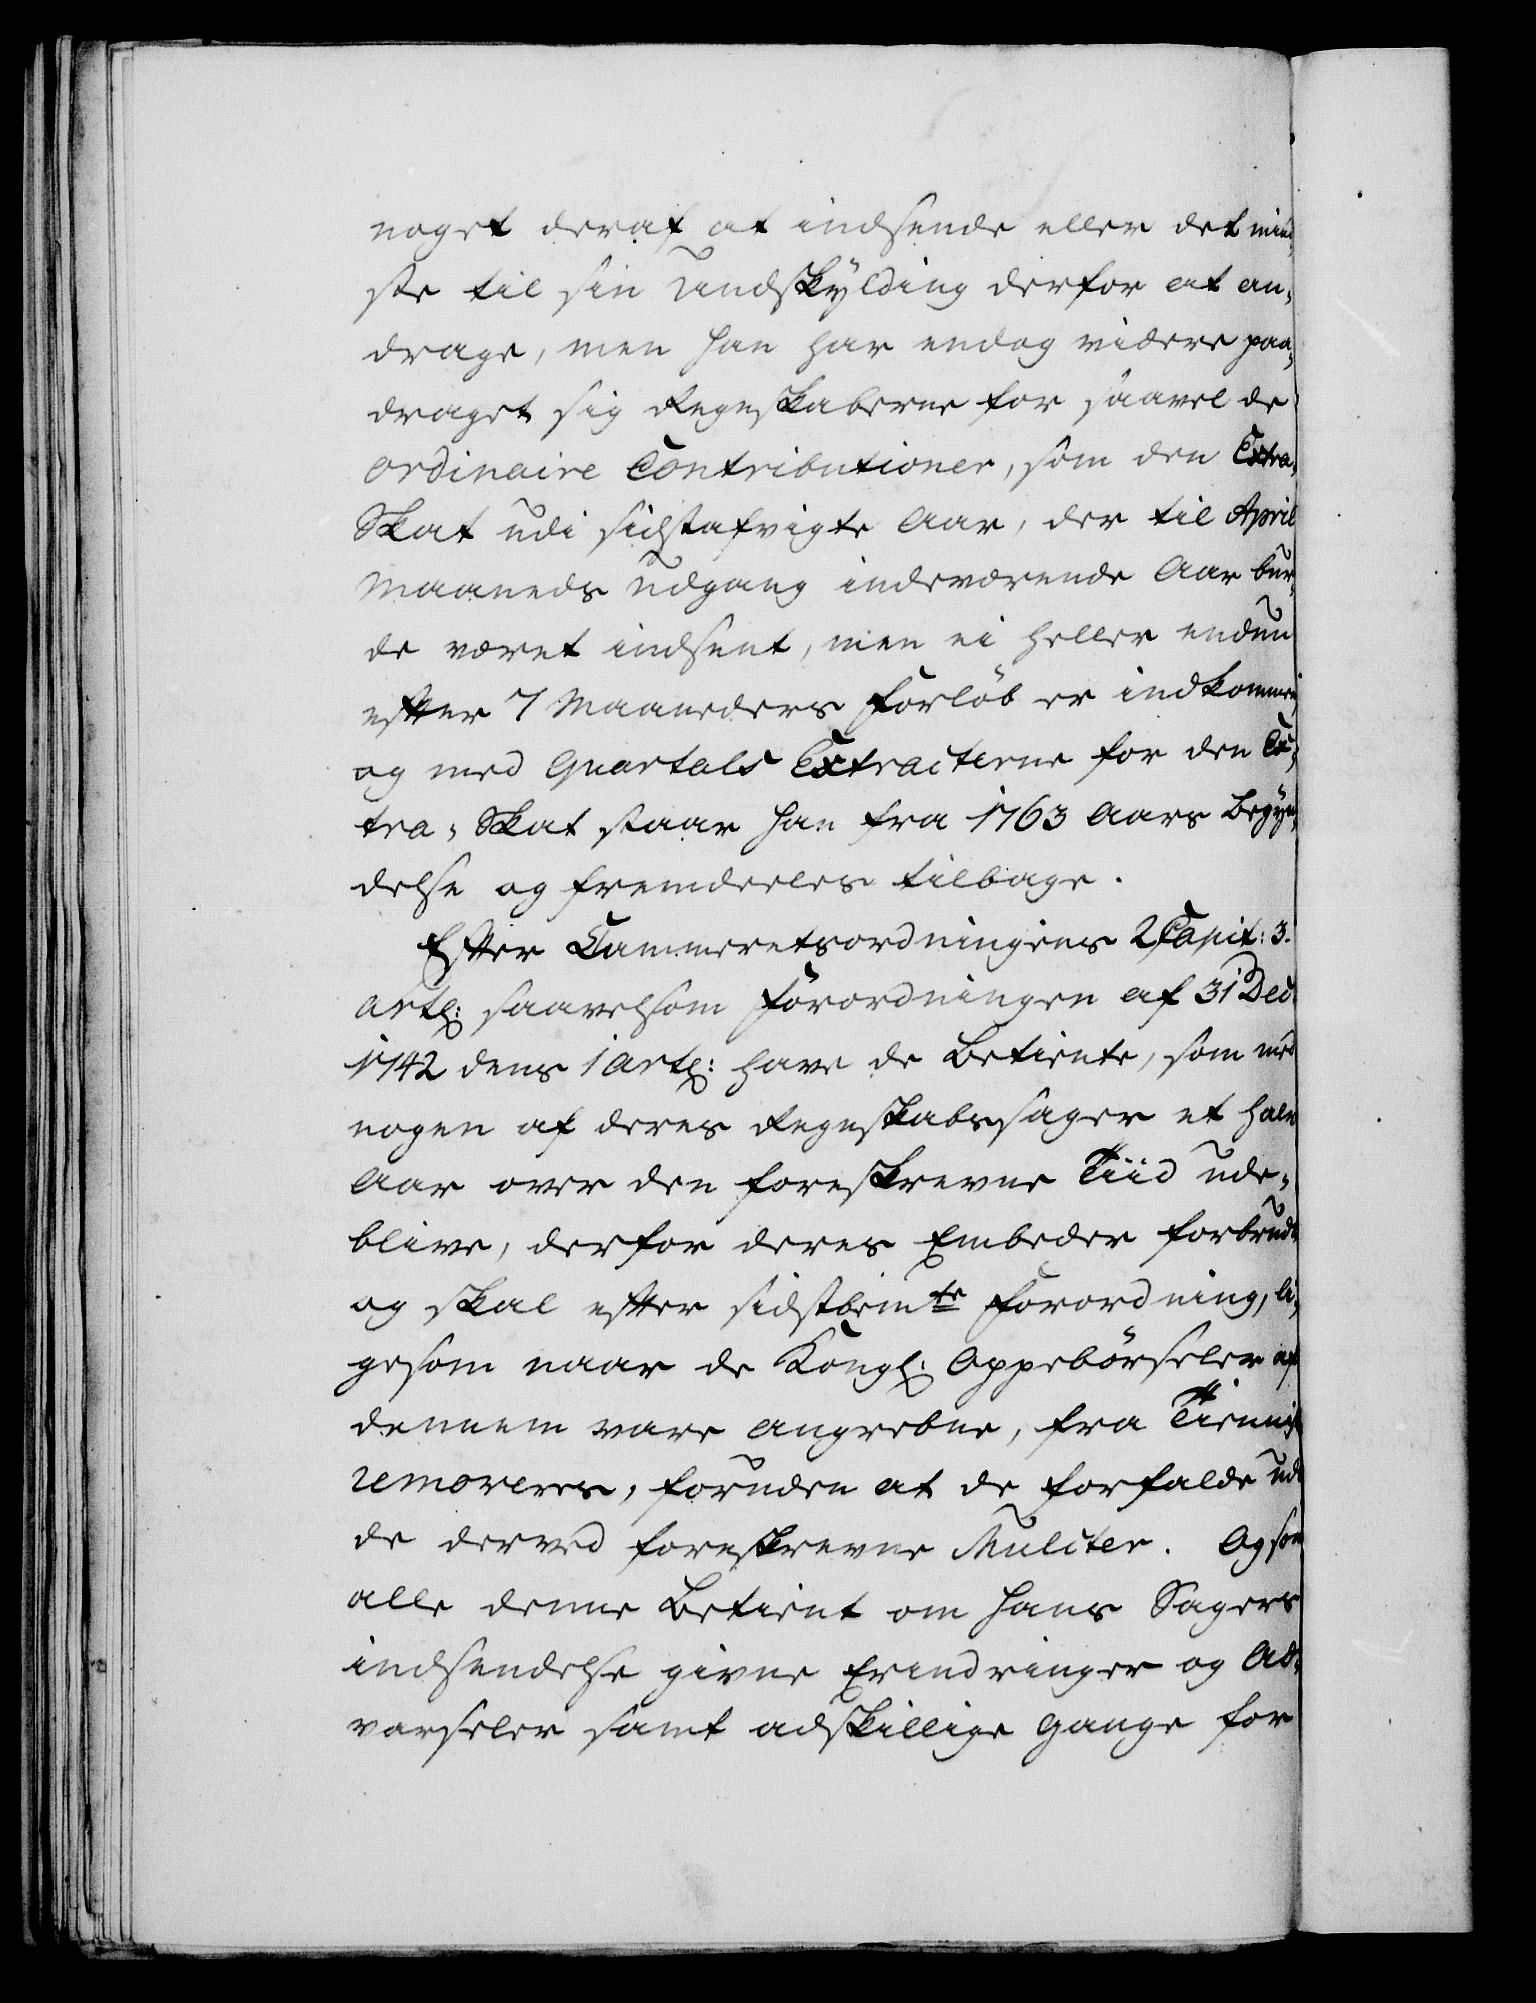 noget deraf at indsende eller det mind,
ste til sin Undskÿlding derfor at an,
drage, men han har endog videre paa,
draget sig Regnskaberne for saavel de
ordinaire Contributioner, som den Extra,
Skat udi sidstafvigte Aar, der til April
Maaneds Udgang indeværende Aar bur,
de været indsent, men ei heller endnu
efter 7 Maaneders Forløb er indkommen,
og med Qvartals Extracterne for den Ex,
tra, Skat staar han fra 1763 Aars Begÿn,
delse og fremdeeles tilbage.
Efter Cammerretsordningens 2 Capit: 3.
Artl: saavelsom Forordningen af 31 Dec:
1742 dens 1 Artl: have de Betiente, som med
nogen af deres Regnskabssager et halv
Aar over den foreskrevne Tiid ude,
blive, derfor deres Embeder forbrudt
og skal efter sidstbemte Forordning, li,
gesom naar de Kongl: Oppebørseler af
dennem vare angrebne, fra Tienniste
removeres, foruden at de forfalde udi
de derved foreskrevne Mulcter. Og som
alle denne Betient om hans Sagers
indsendelse givne Erindringer og Ad,
varseler samt adskillige Gange for